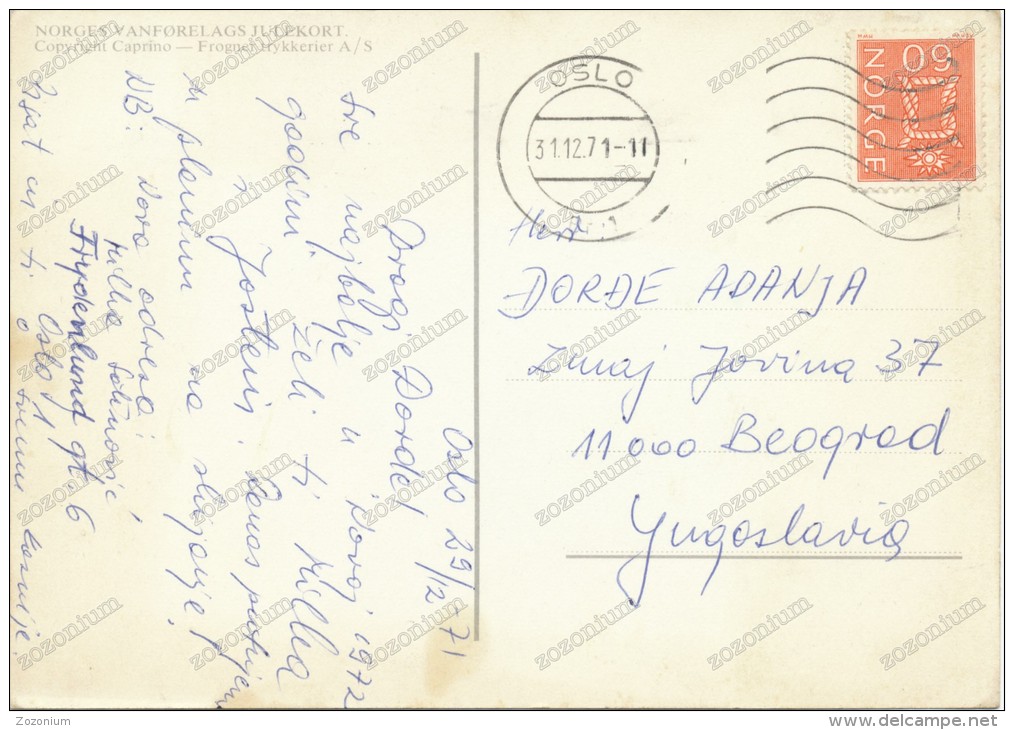 NORGES VANFØRELAGS JULEKORT.
Copyright Caprino — Frogner trykkerier A/S
Oslo 29/12-71
Dragi Đorđe,
sve najbolje u Novoj 1972
godini želi ti Milka
i Jostein. Danas putujem
na planinu na skijanje!
NB: Nova adresa:
Milka
Frydenlund gt. 6
Oslo 1
OSLO
31.12.71-11
NORGE
60
Herr
ĐORĐE ADANJA
Zmaj Jovina 37
11000 Beograd
Yugoslavia
zozonium
Zozonium
delcampe.net